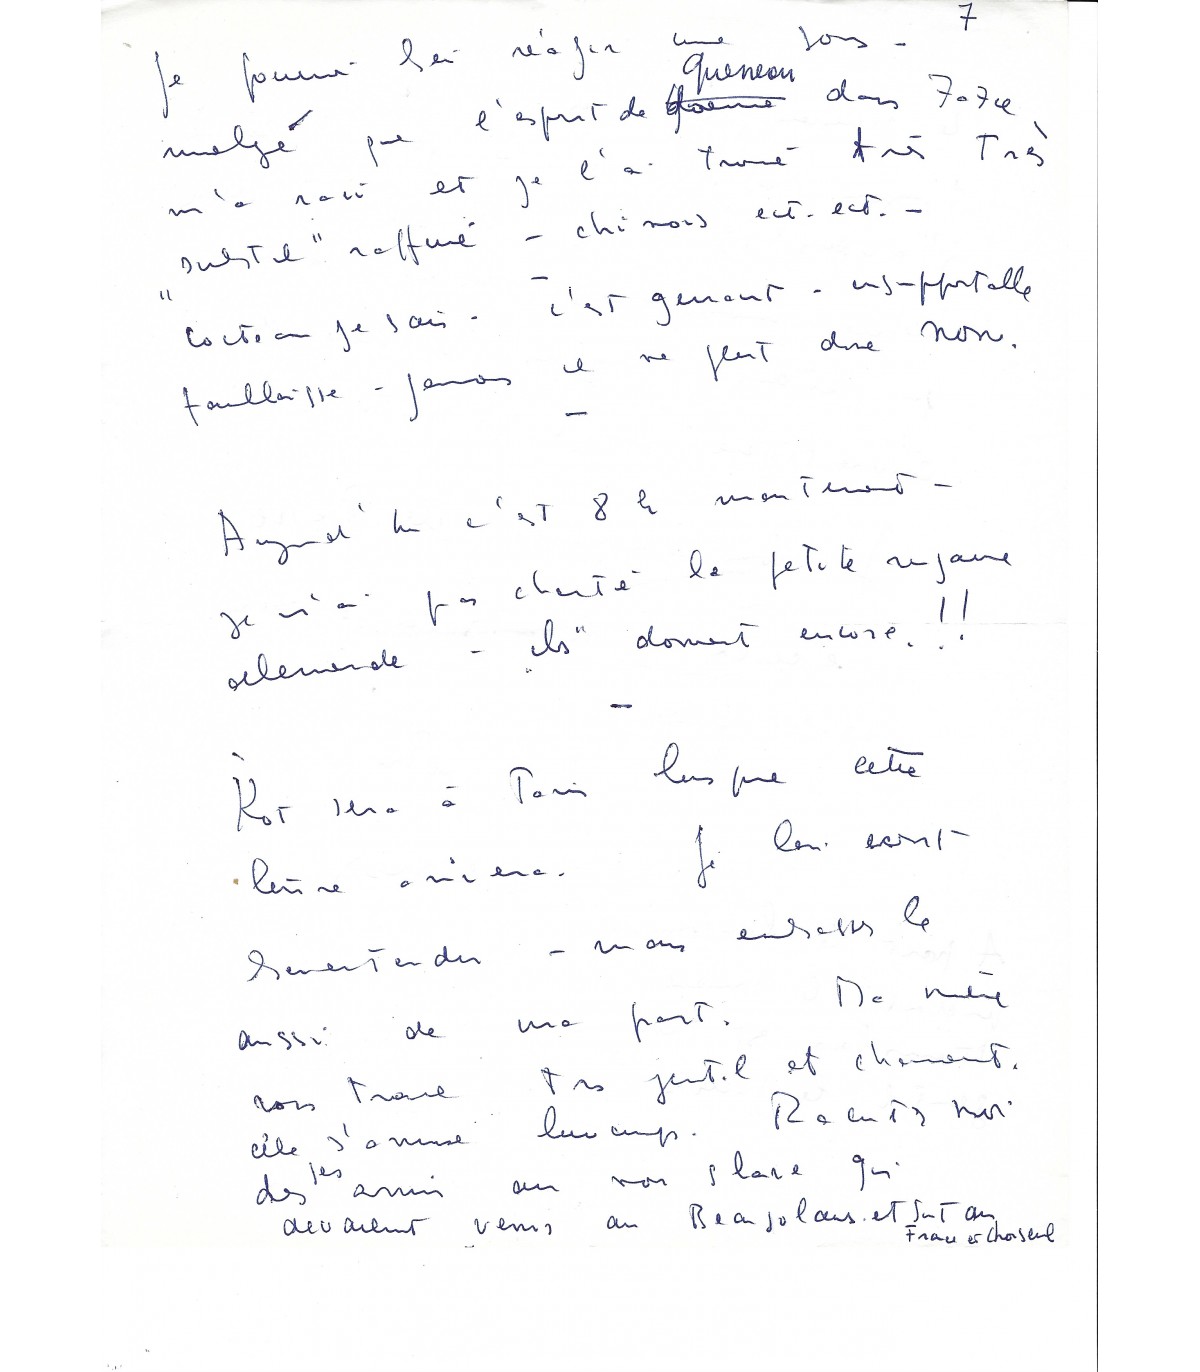 7
Je pourrai lui réagir une fois -
malgré que l'esprit de Queneau dans 7-7ce
m'a ravi et je l'ai trouvé très Très
subtil" raffiné - chinois ect. ect. -
" Cocteau je sais - c'est genant - insupportable
- jamais il ne peut dire non.
Aujourd'hui c'est 8 h maintenant -
je n'ai pas chanté la petite
allemande - "ils" dorment encore.!!
Kot sera à Paris lorsque cette
lettre arrivera. Je lui écrit
- mais embasses le
aussi de ma part. Ma mère
vous trouve trs gentil et charment.
élle s'amuse beucoup. Racontes moi
des ses amis au non slave qui
devaient venir au Beaujolais. et sont au
France et Choiseul